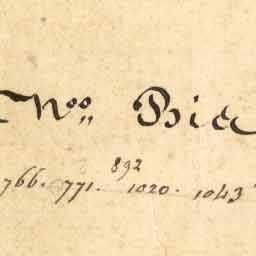 Noo,, Bie
892
766. 771. 1020. 1043